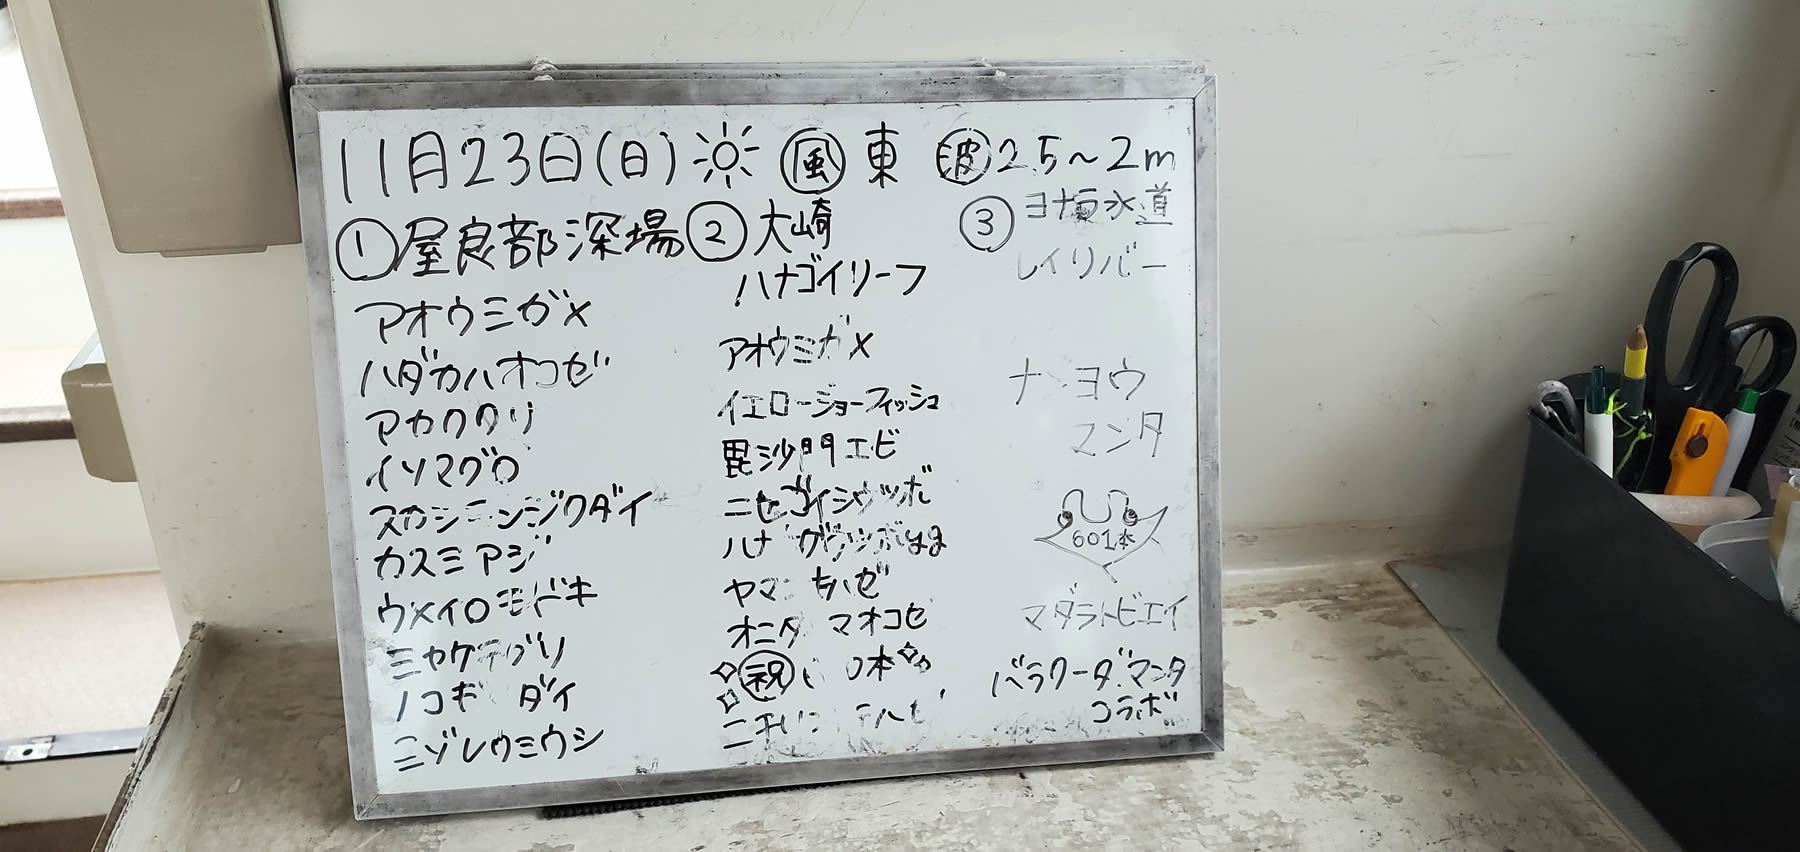 11月23日(日) ☀ 風 東 波 2.5~2m
① 屋良部深場
アオウミガメ
ハダカハオコゼ
アカククリ
イソマグロ
スカシテンジクダイ
カスミアジ
ウメイロモドキ
ミヤケテグリ
ノコギ ダイ
ミゾレウミウシ
② 大崎
ハナゴイリーフ
アオウミガメ
イエロージョーフィッシュ
毘沙門エビ
ニセゴイシウツボ
ハナ
ヤマ ハゼ
オニダ マオコゼ
祝 0本
③ ヨナラ水道
レイリバー
ナンヨウ
マンタ
601本
マダラトビエイ
バラクーダ、マンタ
コラボ